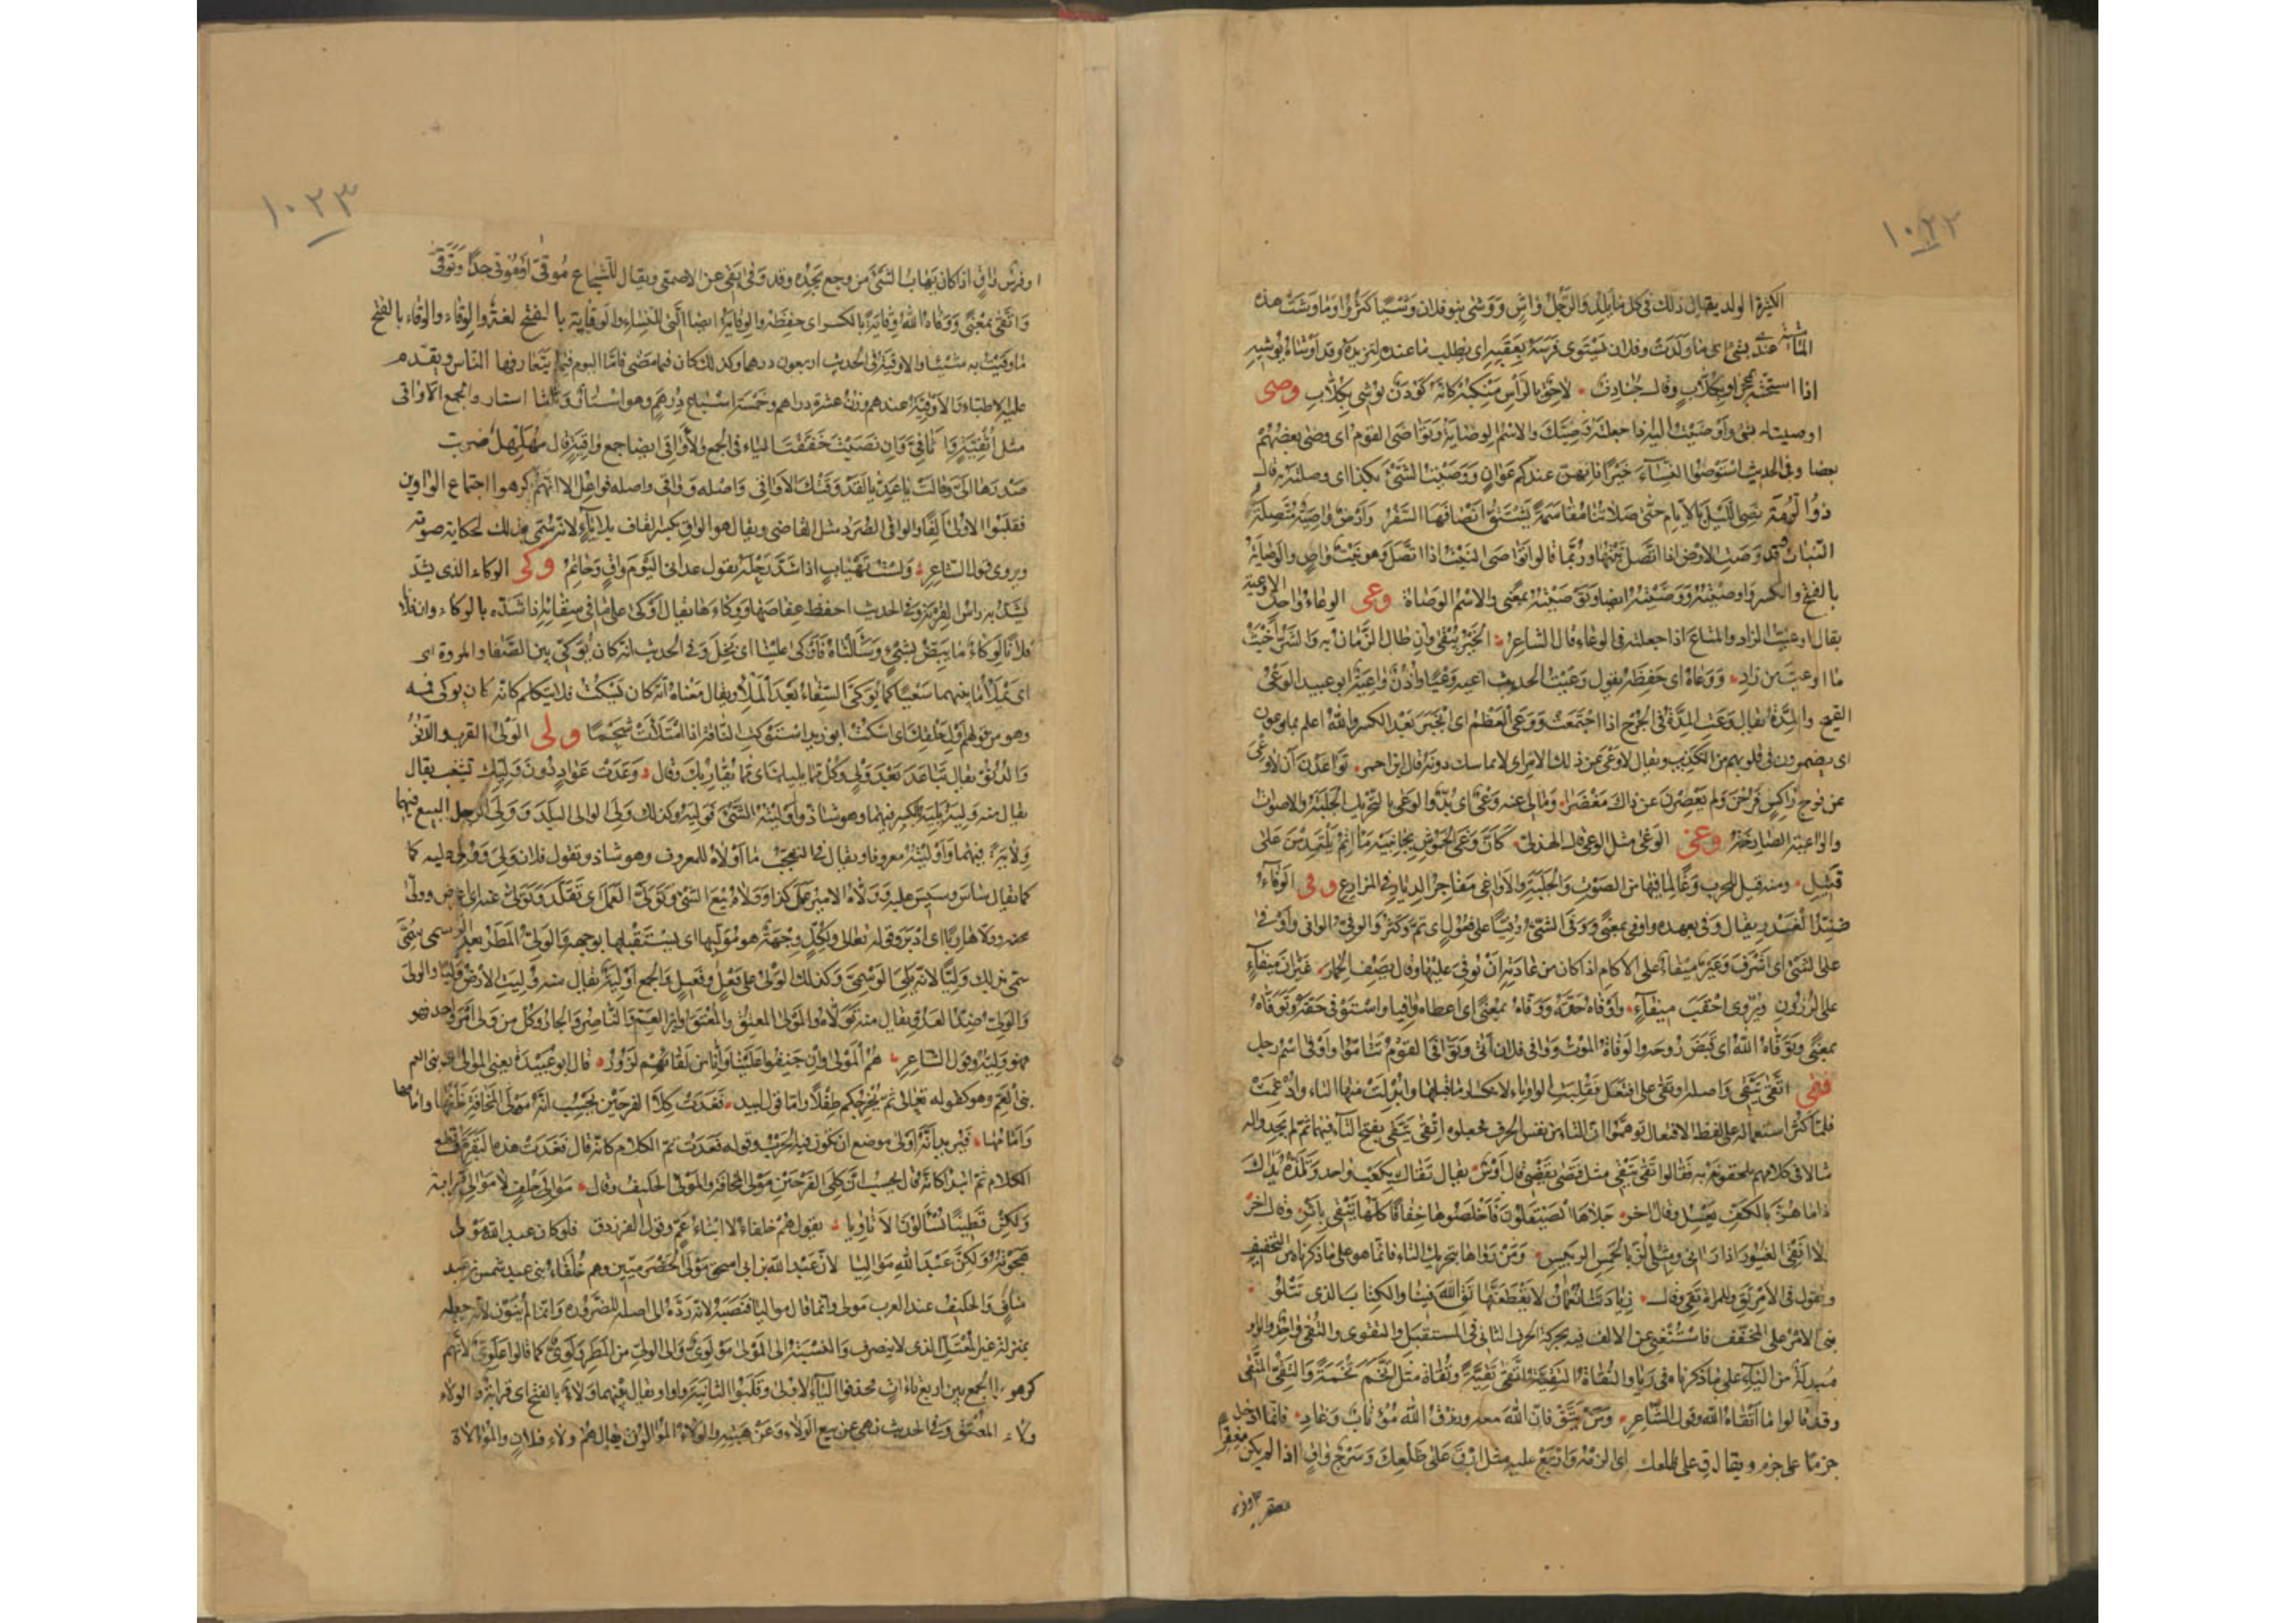 ١٠٢٢
الكثيرة الولد يقال ذلك في كل ما يلد والرجل واش ووشى بنو فلان وشيا كثروا وما وشت هذه
الماشية عندي بشئ اى ما ولدت وفلان يستوشى فرسه بعقبه اى يطلب ما عنده ليزيده وقد اوشاه يوشيه
اذا استحثه بمحجن او بكلاب وقال جنادف لاحق بالرأس منكبه كانه كودن يوشى بكلاب وصى
اوصيت له بشئ واوصيت اليه اذا جعلته وصيك والاسم الوصاية وتواصى القوم اى وصى بعضهم
بعضا وفي الحديث استوصوا بالنساء خيرا فانهن عندكم عوان ووصيت الشئ بكذا اى وصلته به قال
ذو الرمة نصى الليل بالايام حتى صلاتنا مقاسمة يشتق انصافها السفر وارض واصية متصلة
النبات وقد وصت الارض اذا اتصل نبتها وربما قالوا تواصى النبت اذا اتصل وهو نبت واص والوصاية
بالفتح والكسر واوصيته ووصيته ايضا وتوصيته بمعنى والاسم الوصاة وعى الوعاء واحد الاوعية
يقال اوعيت الزاد والمتاع اذا جعلته في الوعاء قال الشاعر الخير يبقى وان طال الزمان به والشر اخبث
ما اوعيت من زاد ووعاه اى حفظه تقول وعيت الحديث اعيه وعيا واذن واعية ابو عبيد الوعى
القيح والمدة يقال وعت المدة في الجرح اذا اجتمعت ووعى العظم اى انجبر بعد الكسر والله اعلم بما يوعون
اى يضمرون في قلوبهم من الكذب ويقال لا وعى عن ذلك الامر اى لا تماسك دونه قال ابن احمر تواعدن ان لا وعى
عن فرج راكس فرحن ولم يغضرن عن ذاك مغضرا ومالى عنه وعى اى بد والوعى بالتحريك الجلبة والاصوات
والواعية الصارخة وغى الوغى مثل الوعى قال الهذلى كأن وغى الخموش بجانبيه مآتم يلتدمن على
قتيل ومنه قيل للحرب وغى لما فيها من الصوت والجلبة والاواغى مفاجر الديار في المزارع وفى الوفاء
ضد الغدر يقال وفى بعهده واوفى بمعنى ووفى الشئ وفيا على فعول اى تم وكثر والوفي الوافي واوفى
على الشئ اى اشرف وعير ميفاء على الاكام اذا كان من عادته ان يوفى عليها وقال يصف الحمار عيران ميفاء
على الرزون ويروى احقب ميفاء واوفاه حقه ووفاه بمعنى اى اعطاه وافيا واستوفى حقه وتوفاه
بمعنى وتوفاه الله اى قبض روحه والوفاة الموت ووافى فلان اتى وتوافى القوم تتاموا واوفى اسم رجل
وقى اتقى يتقى واصله اوتقى على افتعل فقلبت الواو ياء لانكسار ما قبلها وابدلت منها التاء وادغمت
فلما كثر استعماله على لفظ الافتعال توهموا ان التاء من نفس الحرف فجعلوه اتقى يتقى بفتح التاء فيهما ثم لم يجدوا له
مثالا في كلامهم يلحقونه به فقالوا تقى يتقى مثل قضى يقضى قال اوس يقال تقاك بكعب واحد وتلذه يداك
اذا ما هز بالكف يعسل وقال اخر جلاها الصيقلون فاخلصوها خفافا كلها يتقى باثر وقال اخر
ولا اتقى الغيور اذا رانى ومثلى لز بالحمس الربيس ومن رواها بتحريك التاء فانما هو على ما ذكرناه من التخفيف
وتقول في الامر تق وللمراة تقى وقال زيادتنا نعمان لا تقطعنها تق الله فينا والكتاب الذى تتلو
بنى الامر على المخفف فاستغنى عن الالف فيه بحركة الحرف الثانى في المستقبل والتقوى والتقى واحد والواو
مبدلة من الياء على ما ذكرناه في ريا والتقاة التقية يقال اتقى تقية وتقاة مثل اتخم تخمة والتقى المتقى
وقد قالوا ما اتقاه لله وقول الشاعر ومن يتق فان الله معه ورزق الله مؤتاب وغاد فانما ادخل
جزما على جزم ويقال ق على ظلعك اى الزمه واربع عليه مثل ارق على ظلعك وسرج واق اذا لم يكن معقرا
معقرا وفرس
١٠٢٣
وفرس واق اذا كان يهاب المشى من وجع يجده وقد وقى يقى عن الاصمعى ويقال للشجاع موقى اى موقى جدا وتوقى
واتقى بمعنى ووقاه الله وقاية بالكسر اى حفظه والوقاية ايضا التى للنساء والوقاية بالفتح لغة والوقاء والوقاء بالفتح
ما وقيت به شيئا والاوقية في الحديث اربعون درهما وكذلك كان فيما مضى فاما اليوم فيما يتعارفها الناس ويقدم
عليه الاطباء فالاوقية عندهم وزن عشرة دراهم وخمسة اسباع درهم وهو استار وثلثا استار والجمع الاواقى
مثل اثفية واثافى وان شئت خففت الياء في الجمع والاواقى ايضا جمع واقية قال مهلهل ضربت
صدرها الى وقالت يا عدى لقد وقتك الاواقى واصله وواقى واصله فواعل الا انهم كرهوا اجتماع الواوين
فقلبوا الاولى الفا والواقى الصرد مثل القاضى ويقال هو الواق بكسر القاف بلا ياء لانه سمى بذلك لحكاية صوته
ويروى قول الشاعر ولست بهياب اذا شد رحله يقول عدانى اليوم واق وحاتم وكى الوكاء الذى يشد
يشد به رأس القربة وفي الحديث احفظ عفاصها ووكاءها يقال اوكى على ما في سقائه اذا شده بالوكاء وان فلانا
فلانا لوكاء ما يبض بشئ وسألناه فاوكى علينا اى بخل وفي الحديث انه كان يوكى بين الصفا والمروة اى
اى يملأ ما بينهما سعيا كما يوكى السقاء بعد الملأ ويقال معناه انه كان يسكت فلا يتكلم كانه كان يوكى فمه
وهو من قولهم اوك حلقك اى اسكت ابو زيد استوكت الناقة اذا امتلأت شحما ولى الولى القرب والدنو
والدنو يقال تباعد بعد ولى وكل مما يليك اى مما يقاربك وقال وعدت عواد دون وليك تشعب يقال
يقال منه وليه يليه بالكسر فيهما وهو شاذ واوليته الشئ فوليه وكذلك ولى الوالى البلد وولى الرجل البيع فيهما
ولاية فيهما واوليته معروفا ويقال في التعجب ما اولاه للمعروف وهو شاذ وتقول فلان ولى وولى عليه كما
كما يقال ساس وسيس عليه وولاه الامير عمل كذا وولاه بيع الشئ وتولى العمل اى تقلد وتولى عنه اى اعرض وولى
هاربا اى ادبر وقوله تعالى ولكل وجهة هو موليها اى يستقبلها بوجهه والولى المطر بعد الوسمى سمى
سمى بذلك وليا لانه يلى الوسمى وكذلك الولى على فعل وفعيل والجمع اولية يقال منه وليت الارض وليا والولى
والولى ضد العدو يقال منه تولاه والمولى المعتق والمعتق وابن العم والناصر والجار وكل من ولى امر واحد فهو
فهو وليه وقول الشاعر هم المولى وان جنفوا علينا وانا من لقائهم لزور قال ابو عبيدة يعنى الموالى اى بنى العم
بنى العم وهو كقوله تعالى ثم يخرجكم طفلا واما قول لبيد فغدت كلا الفرجين تحسب انه مولى المخافة خلفها وامامها
وامامها فيريد انه اولى موضع ان تكون فيه الحرب وقوله فغدت تم الكلام كانه قال فغدت هذه البقرة وقطع
الكلام ثم ابتدا كانه قال تحسب ان كلى الفرجين مولى المخافة والمولى الحليف وقال موالى حلف لا موالى قرابة
ولكن قطينا يسألون الاتاويا يقول هم حلفاء لا ابناء عم وقول الفرزدق فلو كان عبد الله مولى
هجوته ولكن عبد الله مولى مواليا لان عبد الله بن ابى اسحق مولى الحضرميين وهم حلفاء بنى عبد شمس بن عبد
مناف والحليف عند العرب مولى وانما قال مواليا فنصبه لانه رده الى اصله للضرورة وانما لم ينون لانه جعله
بمنزلة غير المعتل الذى لا ينصرف والنسبة الى المولى مولوى والى الولى من المطر ولوى كما قالوا علوى لانهم
كرهوا الجمع بين اربع ياءات فحذفوا الياء الاولى وقلبوا الثانية واوا ويقال بينهما ولاء بالفتح اى قرابة والولاء
ولاء المعتق وفي الحديث نهى عن بيع الولاء وعن هبته والولاء الموالون يقال هم ولاء فلان والموالاة